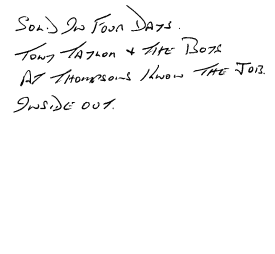 SOLD IN FOUR DAYS.
TONY TAYLOR & THE BOYS
AT THOMPSONS KNOW THE JOB
INSIDE OUT.